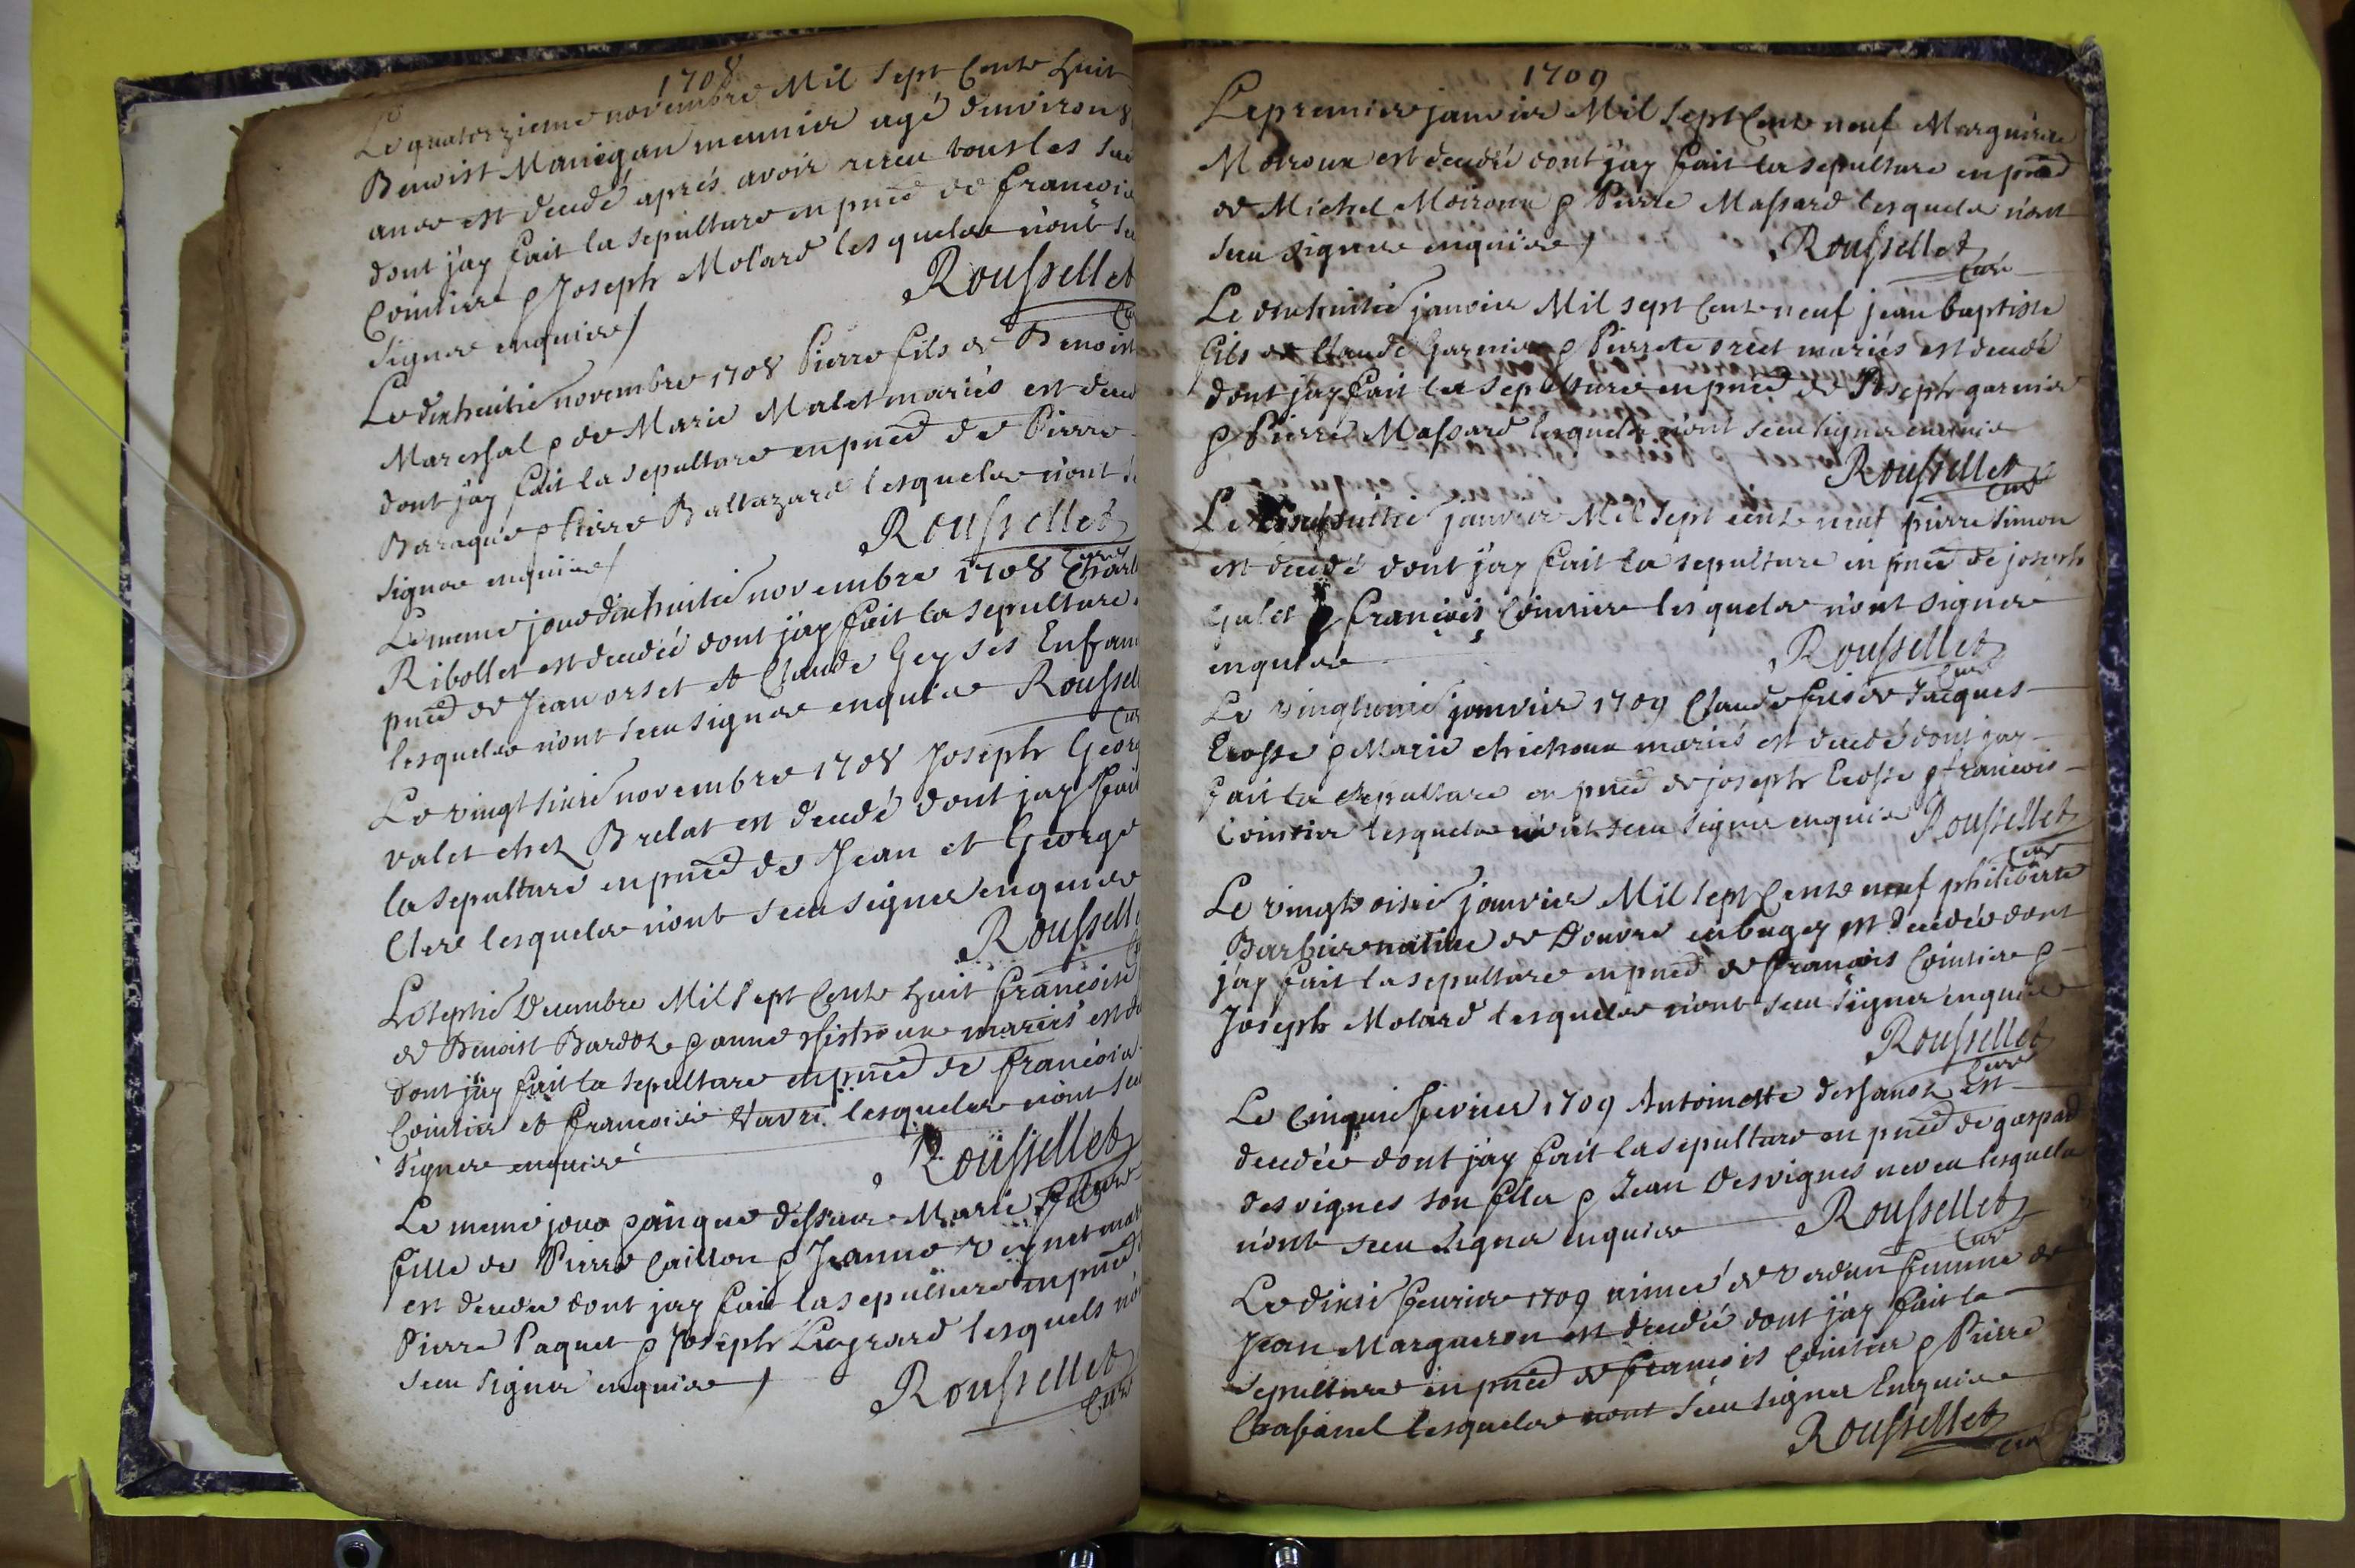 1708
Le quatorzieme novembre Mil sept Cents huit
Benoist Manigan meunier agé denviron
ans est decedé aprés avoir receu tous les sac
dont j'ay fait la sepulture en pnce de francois
Cointier & Joseph Molard lesquels n'ont sc
signer enquis /
Roussellet
Cu
Le dixhuitie novembre 1708 Pierre fils de Benoist
Mareschal & de Marie Malet mariés est deced
dont j'ay fait la sepulture en pnce de Pierre
& Pierre Baltazard lesquels n'ont s
signer enquis /
Roussellet
curé
Le meme jour dixhuitie novembre 1708
Ribollet est decedée dont j'ay fait la sepulture
pnce de Jean orset et Claude Gey ses Enfan
lesquels n'ont sceu signer enquis Roussel
Cur
Le vingt novembre 1708 Joseph Georg
valet chez Brelat est decedé dont j'ay fait
la sepulture en pnce de Jean et George
Clere lesquels n'ont sceu signer enquis
Roussell
Le septie Decembre Mil sept Cents huit francoise
de Benoist & anne mariés est de
dont j'ay fait la sepulture en pnce de francois
Cointier et francois lesquels n'ont sce
signer enquis
Roussellet
Le meme jour & an que dessus Marie
fille de Pierre Caillon & Jeanne mar
est decedee dont j'ay fait la sepulture en pnce
Pierre Paquet & Joseph lesquels n'o
sceu signer enquis /
Roussellet
Curé
1709
Le premier janvier Mil sept Cents neuf Marguerite
Moiroux est decedée dont j'ay fait la sepulture en pnce
de Michel Moiroux & Pierre Massard lesquels n'ont
sceu signer enquis /
Roussellet
Curé
Le dixhuitie janvier Mil sept Cents neuf jean baptiste
fils de Claude Garnier & Pierrete orset mariés est decedé
dont j'ay fait la sepulture en pnce de Joseph garnier
& Pierre Massard lesquels n'ont sceu signer enquis
Roussellet
Curé
Le janvier Mil sept cents neuf pierre simon
est decedé dont j'ay fait la sepulture en pnce de joseph
galet & francois Cointier lesquels n'ont signer
enquis
Roussellet
Curé
Le janvier 1709 Claude fils de Jacques
Ecosse & Marie mariés est decedé dont j'ay
fait la sepulture en pnce de joseph Ecosse & francois
Cointier lesquels n'ont sceu signer enquis Roussellet
Curé
Le vingtroisie janvier Mil sept Cents neuf philiberte
Barbier native de Douvre en bugey est decedée dont
j'ay fait la sepulture en pnce de francois Cointier &
Joseph Molard lesquels n'ont sceu signer enquis
Roussellet
Curé
Le Cinquie fevrier 1709 Antoinette est
decedée dont j'ay fait la sepulture en pnce de gaspard
desvignes son fils & Jean Desvignes neveu lesquels
n'ont sceu signer enquis Roussellet
Curé
Le fevrier 1709 aimée de verdun femme de
Jean Margueron est decedée dont j'ay fait la
sepulture en pnce de francois Cointier & Pierre
Chasanel lesquels n'ont sceu signer Enquis
Roussellet
Curé